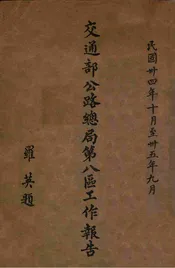 民國卅四年十月至卅五年九月
交通部公路總局第八區工作報告
羅英題